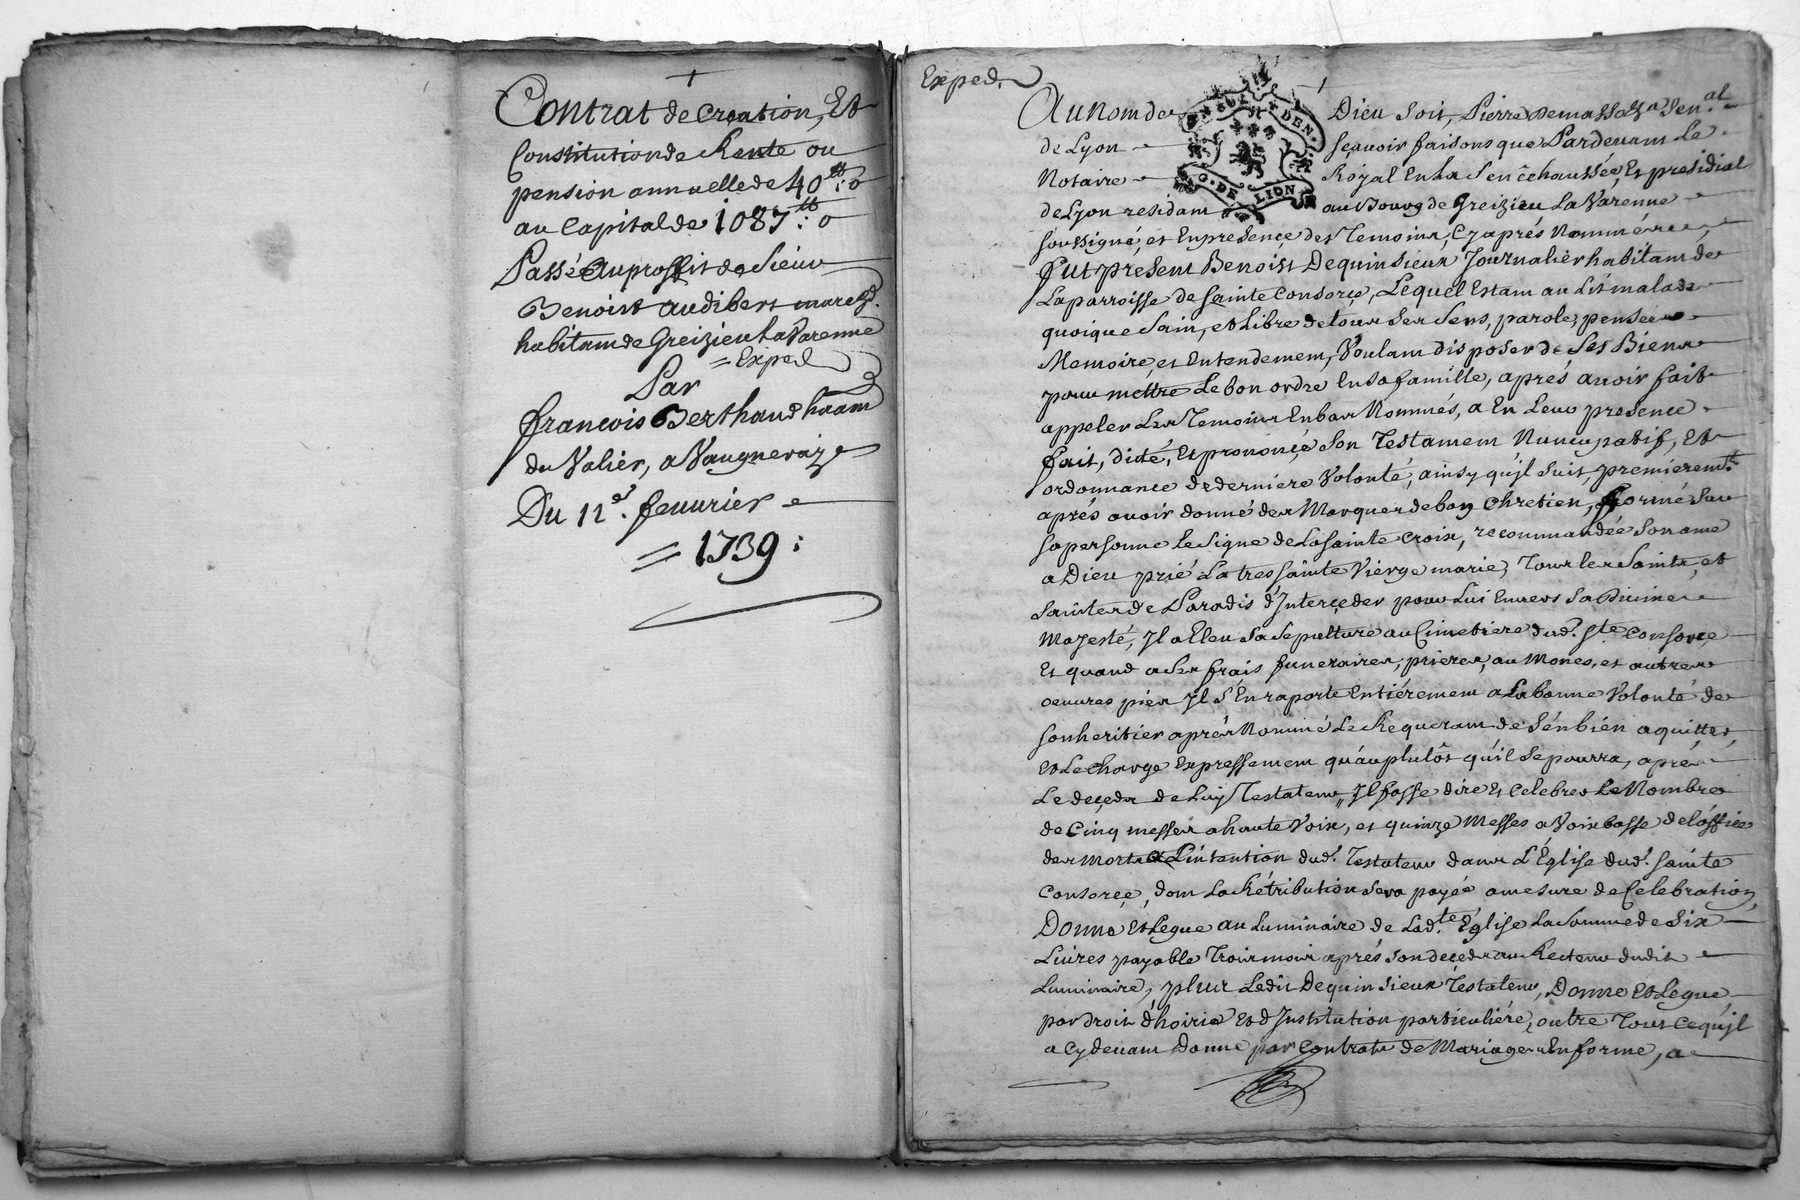 Contrat de creation, Et
Constitution de Rente ou
pension annuelle de 40tt: o
au Capital de 1087tt: o
Passé Au proffit de Sieur
Benoist audibert march.
habitant de Greizieu LaVarenne
= Exped
Par
françois Berthaud
du Valier, a Vaugneraize
Du 12e. feuurier
= 1739:
Exped.
Au nom de Dieu Soit, Pierre
de Lyon sçauoir faisons que Pardeuant Le
Notaire Royal En La Senêchaussée, Et presidial
de Lyon residant au Bourg de Greizieu La Varenne
soussigné, et En presence des Temoins, Cy aprés Nommés,
fut present Benoist Dequinsieux Journalier habitant de
La parroisse de Sainte Consorce, Lequel Estant au Lit malade
quoique Sain, et Libre de tous Ses Sens, parole, pensée
Memoire, et Entendement, Voulant disposer de Ses Biens
pour mettre Le bon ordre En Sa famille, aprés auoir fait
appeler Les Temoins En bas Nommés, a En Leur presence
fait, dicté, Et prononçé Son Testament Nuncupatif, Et
ordonnance de derniere Volonté, ainsy qu'jl Suit, premierement
aprés auoir donné des Marques de bon Chretien, formé Sur
sa personne le Signe de La Sainte Croix, recommandée Son ame
a Dieu prié La tres Sainte Viérge marie, Tous les Saints, et
Saintes de Paradis d'Interçeder pour Lui Enuers Sa Diuine
Majesté, Jl a Eleu Sa Sepulture au Cimetiere dud. Ste. Consorce
Et quand a Ses frais funeraires, prieres, aumones, et autres
oeuures pies Jl S'En raporte Entiérement a La bonne Volonté de
son heritier aprés Nommé Le Requerant de S'én bién aquitter,
Et Le Charge Expressement qu'au plutôt qu'il Se pourra, apres
Le deçeds de Luy Testateur, Jl fasse dire Et Celebrer Le Nombre
de Cinq messes a haute Voix, et quinze Messes a Voix basse de l'office
des morts a L'intention dud. Testateur dans L'Église dud. Sainte
Consorçe, dont La Rétribution Sera payée a mesure de Celebration,
Donne Et Legue au Luminaire de Ladte. Église La Somme de Six
Liures payable Trois mois aprés Son deçeds au Recteur dudit
Luminaire, plus Ledit Dequinsieux Testateur, Donne Et Legue
par droit d'hoirie Et d'Institution particuliére, outre Tout Ce qu'jl
a Cy deuant Donné par Contrats de Mariage En forme, a